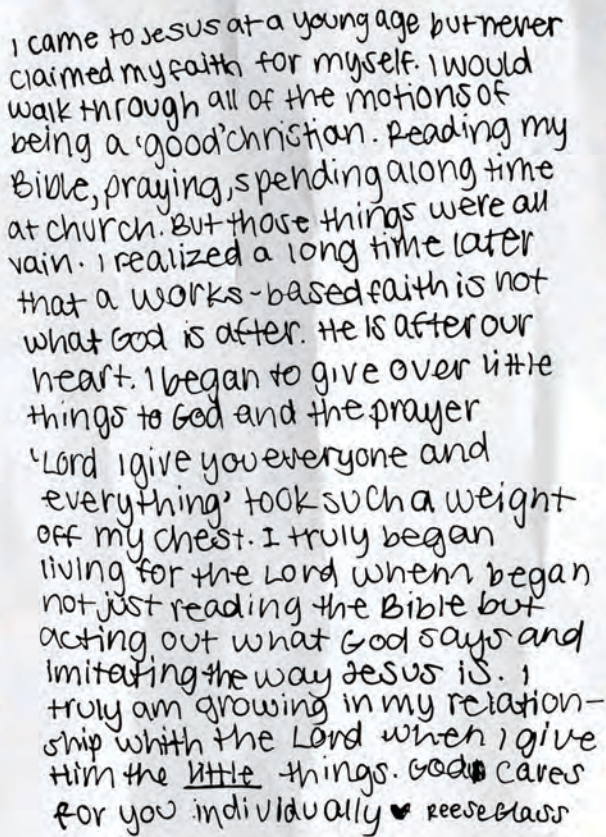 I came to Jesus at a young age but never
claimed my faith for myself. I would
walk through all of the motions of
being a 'good' christian. Reading my
Bible, praying, spending along time
at church. But those things were all
vain. I realized a long time later
that a works-based faith is not
what God is after. He is after our
heart. I began to give over little
things to God and the prayer
'Lord I give you everyone and
everything' took such a weight
off my chest. I truly began
living for the Lord whenn began
not just reading the Bible but
acting out what God says and
imitating the way Jesus is. I
truly am growing in my relation-
ship whith the Lord when I give
Him the little things. God cares
for you individually ♥ Reese Glass